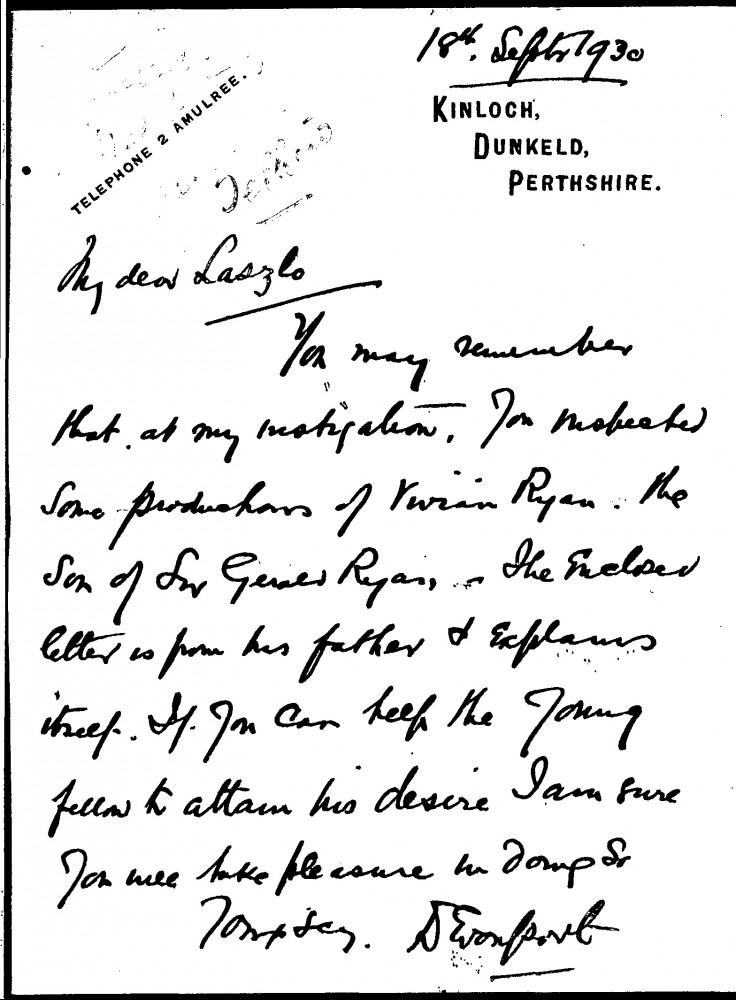 18th. Septr 1930
KINLOCH,
DUNKELD,
PERTHSHIRE.
TELEPHONE 2 AMULREE.
My dear Laszlo
You may remember
that, at my instigation, you inspected
some productions of Vivian Ryan. the
son of Sir Gerald Ryan, - The enclosed
letter is from his father & explains
itself. If you can help the young
fellow to attain his desire I am sure
you will take pleasure in doing so
Devonport